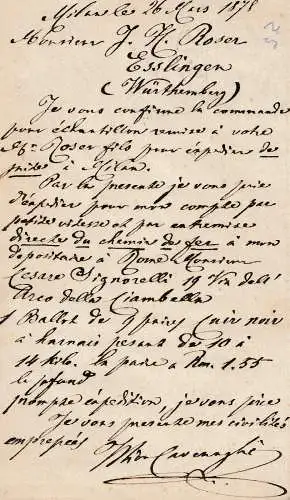 Milan les 26 Mars 1878
Monsieur J. H. Roser
Esslingen
(Würthemberg)
Je vous confirme la commande
pour échantillon remise à votre
Roser fils pour expédier de
suite à Milan.
Par la presente je vous prie
d'expedier pour mon compte par
petite vitesse et par entremise
directe du chemin de fer à mon
depositaire à Rome Monsieur
Cesare Signorelli 19 Via dell'
Arco della Ciambella
1 Ballot de 9 paires Cuir noir
à harnais pesant de 10 à
14 kilo. la paire a Rm. 1.55
le
prompte expédition, je vous prie
Je vous presente mes civilités
empressés
Cavenaghi